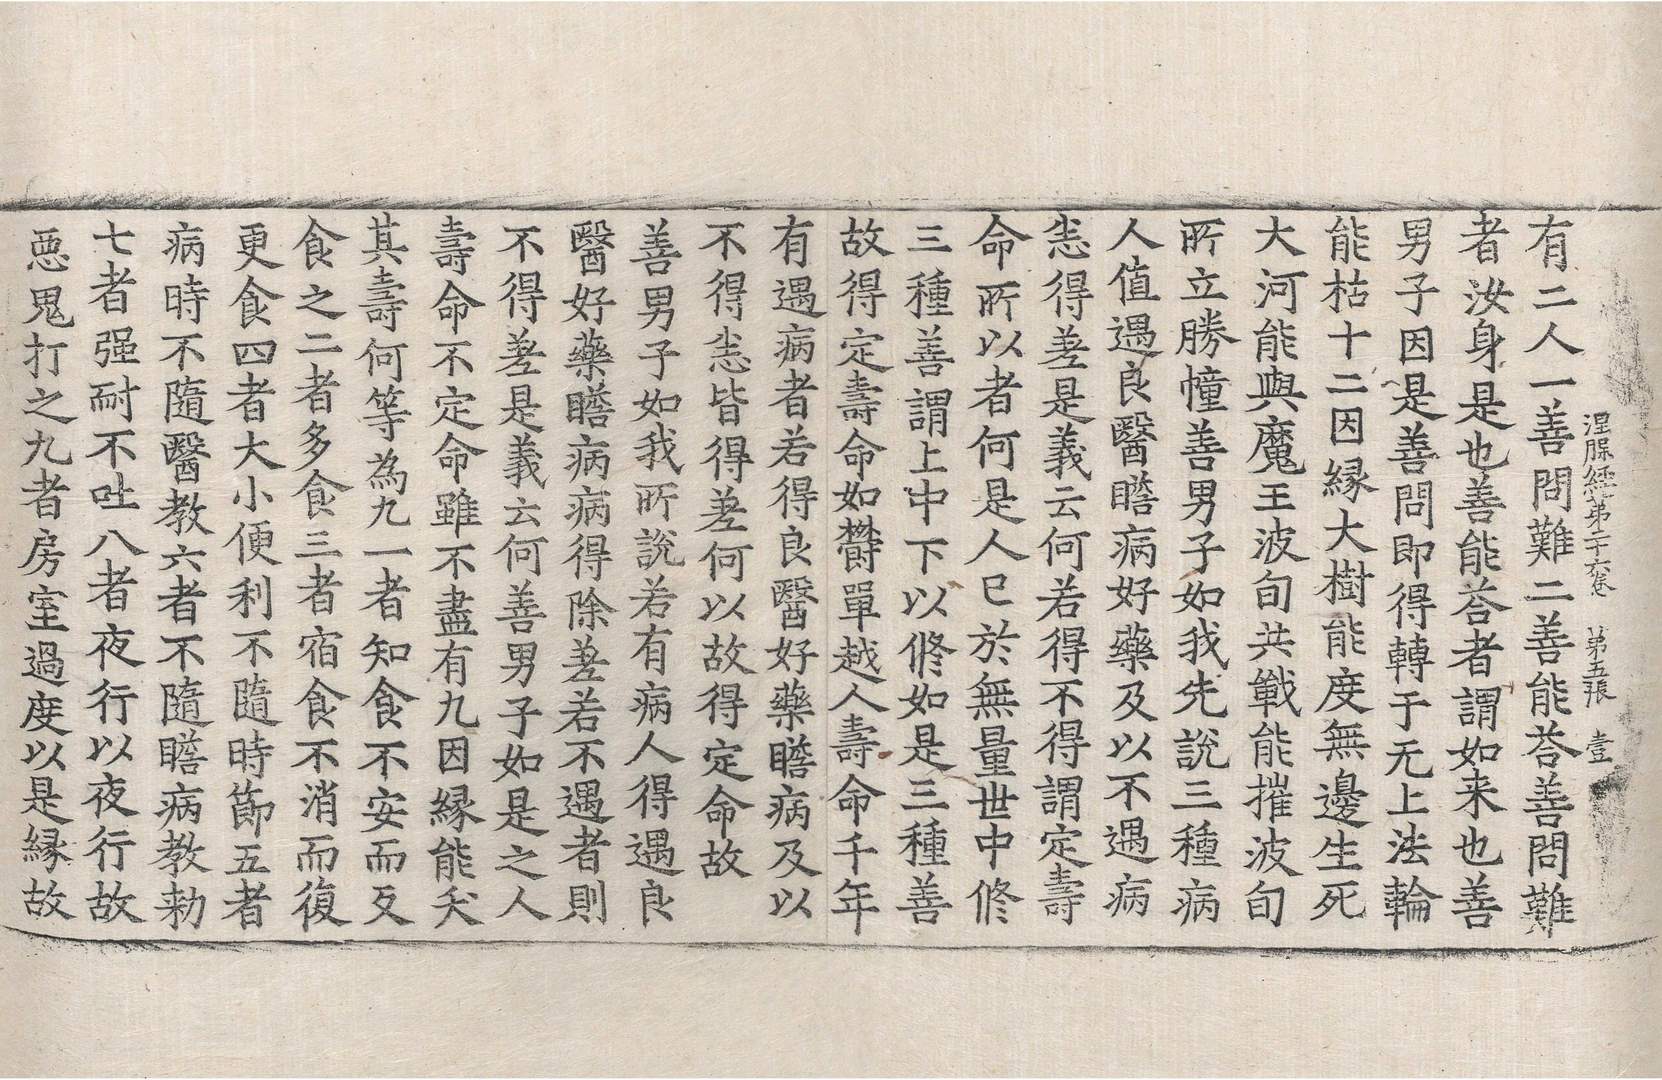 涅槃經第二十六卷 第五張 壹
有二人一善問難二善能荅善問難
者汝身是也善能荅者謂如来也善
男子因是善問即得轉于无上法輪
能枯十二因緣大樹能度無邊生死
大河能與魔王波旬共戰能摧波旬
所立勝幢善男子如我先說三種病
人值遇良醫瞻病好藥及以不遇病
悉得差是義云何若得不得謂定壽
命所以者何是人已於無量世中修
三種善謂上中下以修如是三種善
故得定壽命如欝單越人壽命千年
有遇病者若得良醫好藥瞻病及以
不得悉皆得差何以故得定命故
善男子如我所說若有病人得遇良
醫好藥瞻病病得除差若不遇者則
不得差是義云何善男子如是之人
壽命不定命雖不盡有九因緣能夭
其壽何等為九一者知食不安而反
食之二者多食三者宿食不消而復
更食四者大小便利不隨時節五者
病時不隨醫教六者不隨瞻病教勑
七者强耐不吐八者夜行以夜行故
惡鬼打之九者房室過度以是緣故